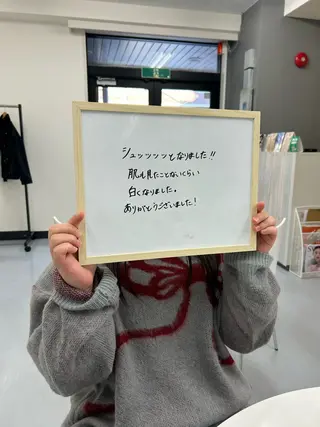 シュッッッッとなりました!!
肌も見たことないくらい
白くなりました。
ありがとうございました!